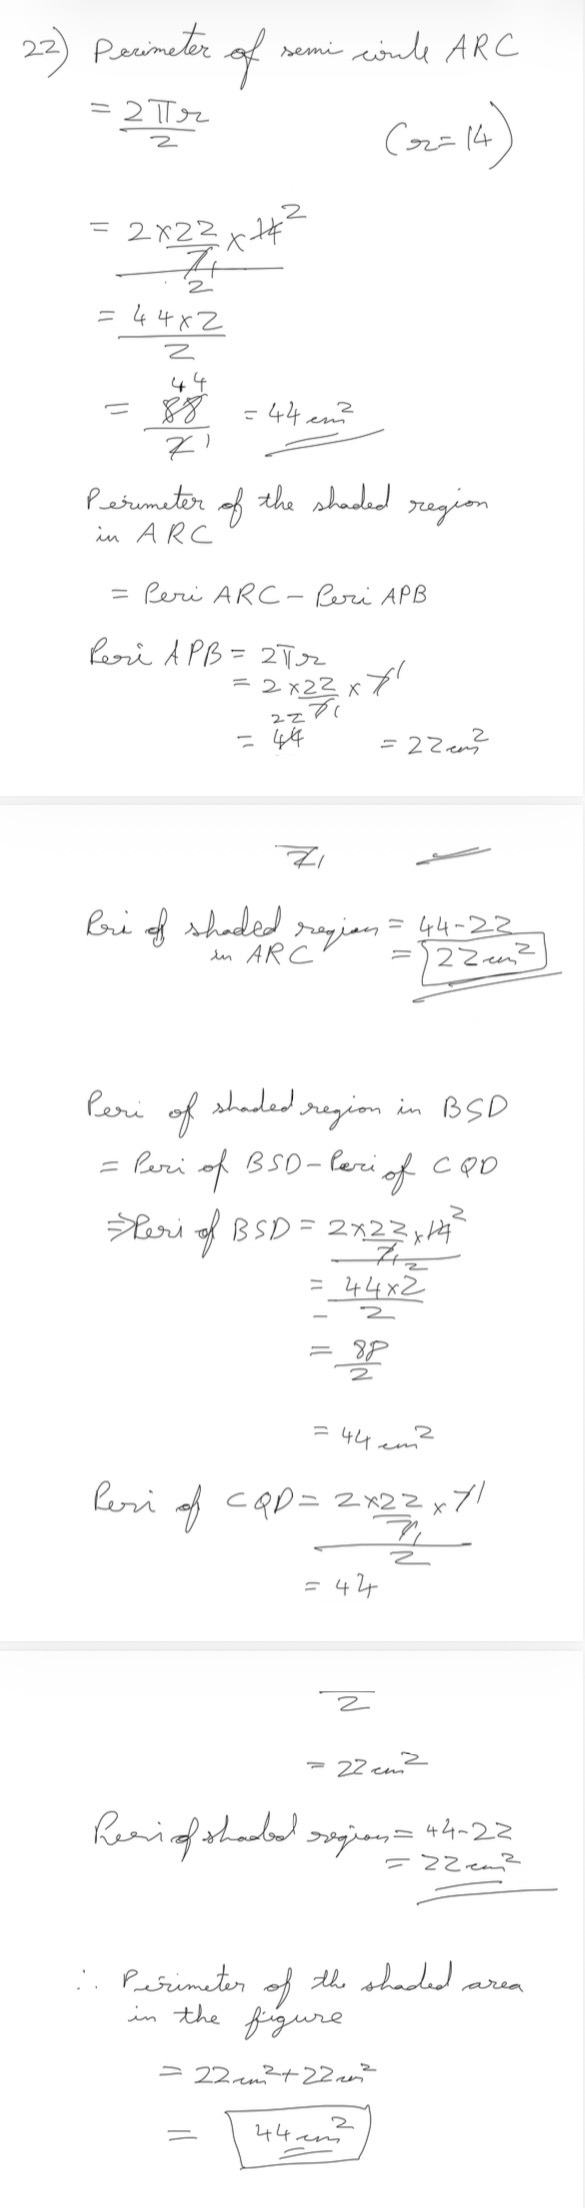 22) Perimeter of semi circle ARC
= 2πr / 2 (r=14)
= 2×22/7 × 14 2 / 2
= 44×2 / 2
44
= 88 / 2 1 = 44 cm²
Perimeter of the shaded region
in ARC
= Peri ARC – Peri APB
Peri APB = 2πr
= 2×22/7 1 × 7 1
22
= 44 = 22 cm²
2 1
Peri of shaded region = 44-22
in ARC = 22 cm²
Peri of shaded region in BSD
= Peri of BSD – Peri of CQD
⇒ Peri of BSD = 2×22/7 1 × 14 2 / 2
= 44×2 / 2
= 88 / 2
= 44 cm²
Peri of CQD = 2×22/7 1 × 7 1 / 2
= 44
2
= 22 cm²
Peri of shaded region = 44-22
= 22 cm²
∴ Perimeter of the shaded area
in the figure
= 22 cm² + 22 cm²
= 44 cm²